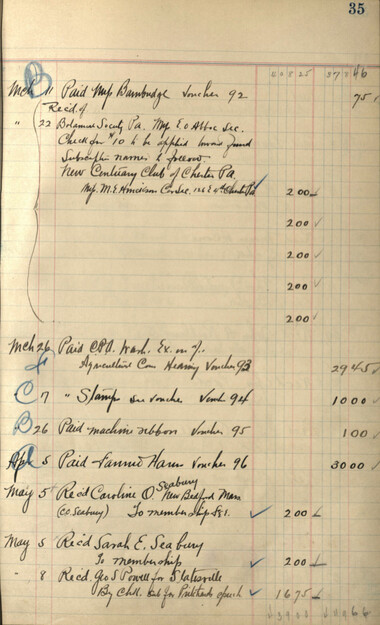 35
B
Mch 11 Paid Mrs Bainbridge Voucher 92 75
Rec'd of
" 22 Botanical Society Pa. Mrs E O Abbot Sec.
Check for $10 to be applied toward fund
Subscription names to follow.
New Century Club of Chester Pa.
Mrs. M. E. Cor Sec. Chester Pa 200
200
200
200
200
Mch 26 Paid Wash. Ex. on
Agriculture Com Hearing Voucher 93 2945
C 7 " Stamps see voucher Vouch 94 1000
B 26 Paid machine ribbon Voucher 95 100
Apl 5 Paid Fannie Voucher 96 3000
May 5 Rec'd Caroline O Seabury New Bedford Mass
(C.O. Seabury) To membership 200
May 5 Rec'd Sarah E. Seabury
To membership 200
" 8 Rec'd Geo S Powell for Statesville
By Chll. for Pritchards speech 1675